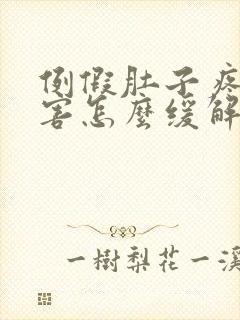 例假肚子疼
害怎麼緩解
一樹梨花一溪